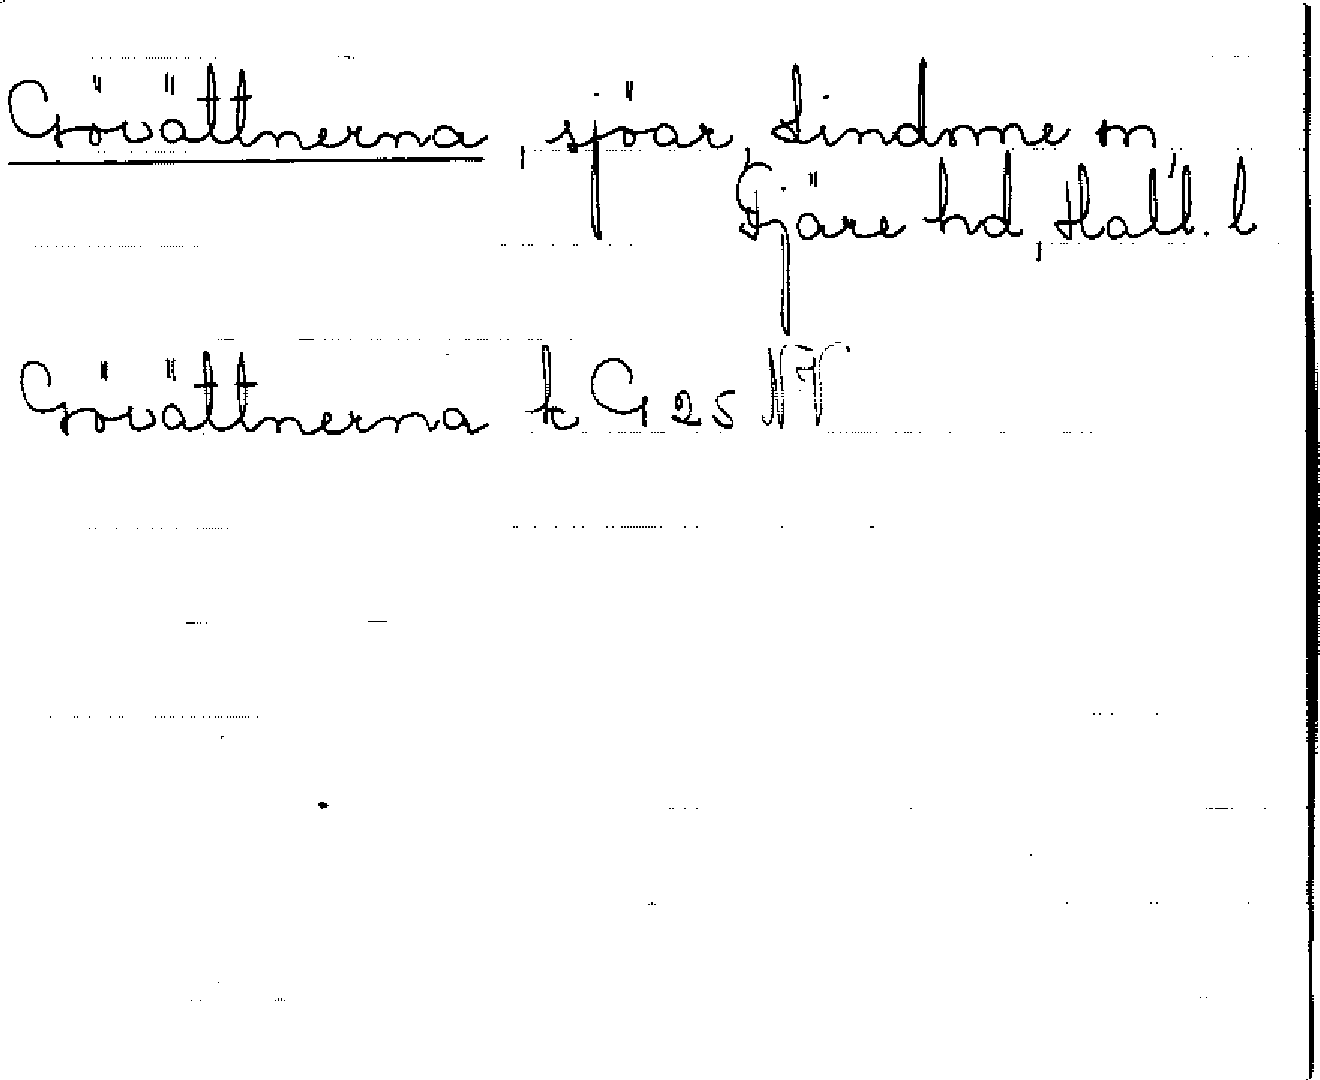 Gövättnerna, sjöar, Lindome sn,
Fjäre hd, Hall. l
Gövättnerna k G 25 NV